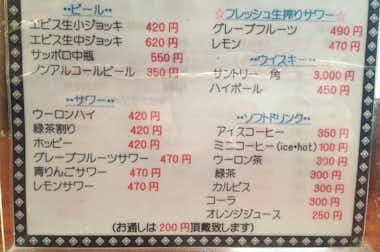 **ビール**
エビス生小ジョッキ 420円
エビス生中ジョッキ 620円
サッポロ中瓶 550円
ノンアルコールビール 350円
**サワー**
ウーロンハイ 420円
緑茶割り 420円
ホッピー 420円
グレープフルーツサワー 470円
青りんごサワー 470円
レモンサワー 470円
☆フレッシュ生搾りサワー☆
グレープフルーツ 490円
レモン 470円
**ウイスキー**
サントリー 角 3,000円
ハイボール 450円
**ソフトドリンク**
アイスコーヒー 350円
ミニコーヒー(ice・hot) 100円
ウーロン茶 300円
緑茶 300円
カルピス 300円
コーラ 300円
オレンジジュース 250円
(お通しは200円頂戴致します)